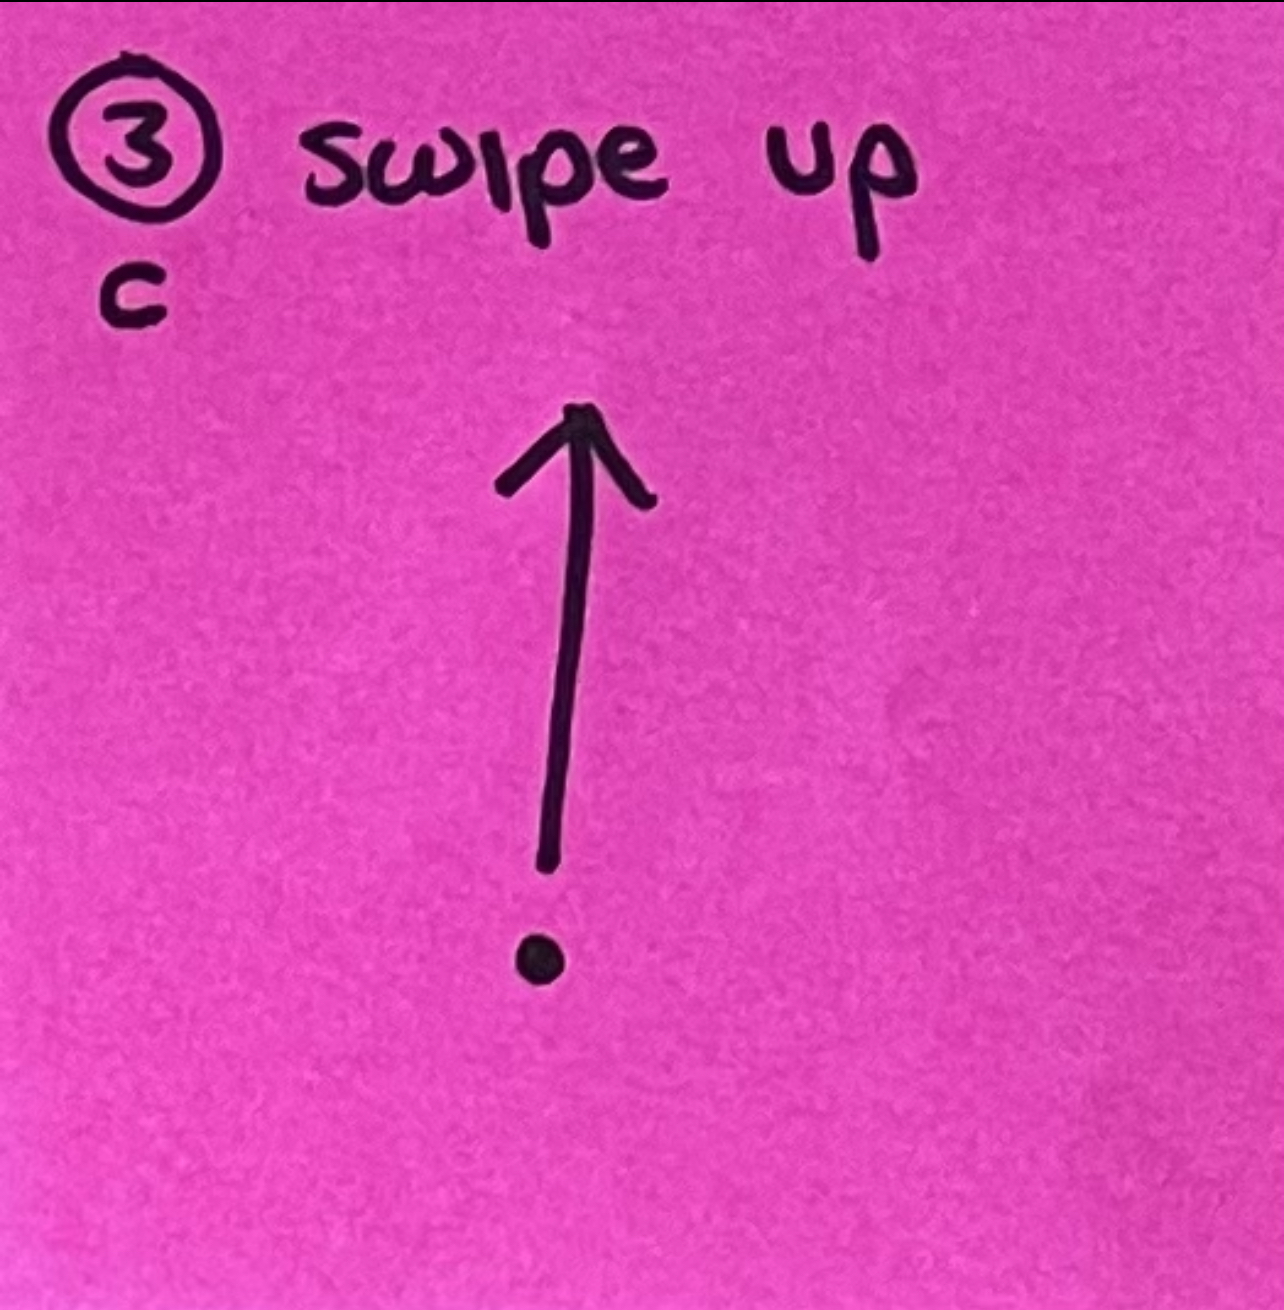 3 swipe up
c